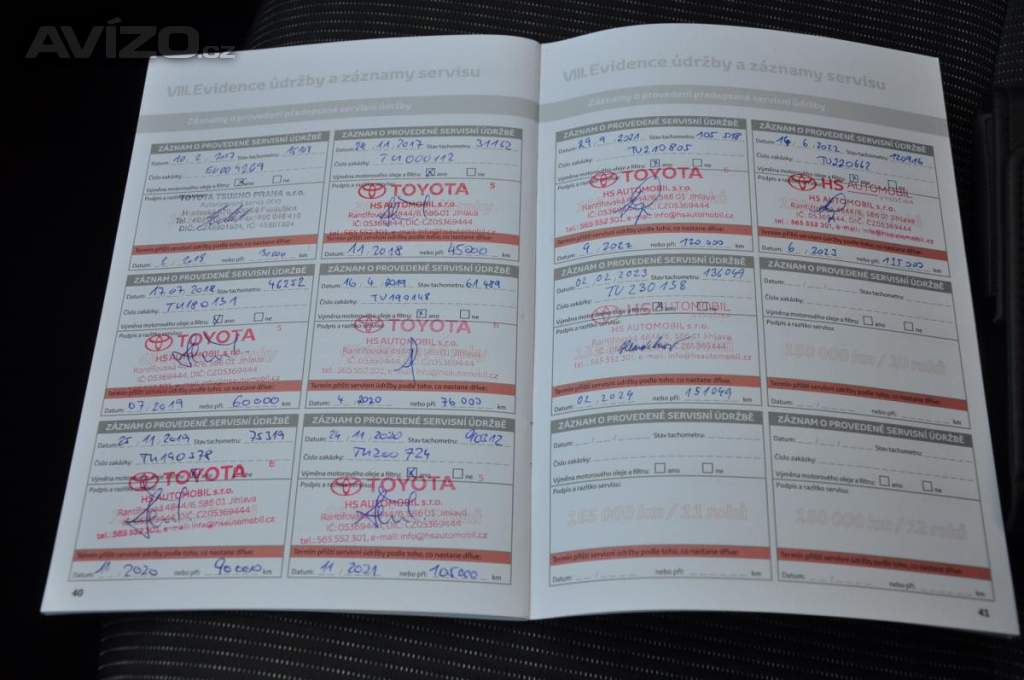 AVÍZO.cz
VIII. Evidence údržby a záznamy servisu
Záznamy o provedení předepsané servisní údržby
ZÁZNAM O PROVEDENÉ SERVISNÍ ÚDRŽBĚ
Datum: 10. 2. 2017 Stav tachometru:
Číslo zakázky:
Výměna motorového oleje a filtru: ano ne
Podpis a
TOYOTA TSUSHO PRAHA s.r.o.
Termín příští servisní údržby podle toho, co nastane dříve:
Datum: 2. 2018 nebo při: 30000 km
ZÁZNAM O PROVEDENÉ SERVISNÍ ÚDRŽBĚ
Datum: 28. 11. 2017 Stav tachometru: 31162
Číslo zakázky: TU000112
Výměna motorového oleje a filtru: ano ne
Podpis a
TOYOTA 5
HS AUTOMOBIL s.r.o.
Rantířovská 4844/6, 586 01 Jihlava
IČ: 05369444, DIČ: CZ05369444
tel.: 565 552 301, e-mail: info@hsautomobil.cz
Termín příští servisní údržby podle toho, co nastane dříve:
Datum: 11. 2018 nebo při: 45000 km
ZÁZNAM O PROVEDENÉ SERVISNÍ ÚDRŽBĚ
Datum: 17. 07. 2018 Stav tachometru: 46252
Číslo zakázky: TU180131
Výměna motorového oleje a filtru: ano ne
Podpis a razítko
TOYOTA 5
HS AUTOMOBIL s.r.o.
Rantířovská 4844/6, 586 01 Jihlava
IČ: 05369444, DIČ: CZ05369444
tel.: 565 552 301, e-mail: info@hsautomobil.cz
Termín příští servisní údržby podle toho, co nastane dříve:
Datum: 07. 2019 nebo při: 60000 km
ZÁZNAM O PROVEDENÉ SERVISNÍ ÚDRŽBĚ
Datum: 16. 4. 2019 Stav tachometru: 61489
Číslo zakázky: TU190148
Výměna motorového oleje a filtru: ano ne
Podpis a
TOYOTA 5
HS AUTOMOBIL s.r.o.
Rantířovská 4844/6, 586 01 Jihlava
IČ: 05369444, DIČ: CZ05369444
tel.: 565 552 301, e-mail: info@hsautomobil.cz
Termín příští servisní údržby podle toho, co nastane dříve:
Datum: 4. 2020 nebo při: 76000 km
ZÁZNAM O PROVEDENÉ SERVISNÍ ÚDRŽBĚ
Datum: 25. 11. 2019 Stav tachometru: 75319
Číslo zakázky: TU190378
Výměna motorového oleje a filtru: ano ne
Podpis a
TOYOTA 6
HS AUTOMOBIL s.r.o.
Rantířovská 4844/6, 586 01 Jihlava
IČ: 05369444, DIČ: CZ05369444
tel.: 565 552 301, e-mail: info@hsautomobil.cz
Termín příští servisní údržby podle toho, co nastane dříve:
Datum: 11. 2020 nebo při: 90000 km
ZÁZNAM O PROVEDENÉ SERVISNÍ ÚDRŽBĚ
Datum: 24. 11. 2020 Stav tachometru: 90312
Číslo zakázky: TU200724
Výměna motorového oleje a filtru: ano ne
Podpis a
TOYOTA 5
HS AUTOMOBIL s.r.o.
Rantířovská 4844/6, 586 01 Jihlava
IČ: 05369444, DIČ: CZ05369444
tel.: 565 552 301, e-mail: info@hsautomobil.cz
Termín příští servisní údržby podle toho, co nastane dříve:
Datum: 11. 2021 nebo při: 105000 km
40
VIII. Evidence údržby a záznamy servisu
Záznamy o provedení předepsané servisní údržby
ZÁZNAM O PROVEDENÉ SERVISNÍ ÚDRŽBĚ
Datum: 29. 9. 2021 Stav tachometru: 105518
Číslo zakázky: TU210805
Výměna motorového oleje a filtru: ano ne
Podpis a
TOYOTA 6
HS AUTOMOBIL s.r.o.
Rantířovská 4844/6, 586 01 Jihlava
IČ: 05369444, DIČ: CZ05369444
tel.: 565 552 301, e-mail: info@hsautomobil.cz
Termín příští servisní údržby podle toho, co nastane dříve:
Datum: 9. 2022 nebo při: 120 000 km
ZÁZNAM O PROVEDENÉ SERVISNÍ ÚDRŽBĚ
Datum: 14. 6. 2022 Stav tachometru:
Číslo zakázky:
Výměna motorového oleje a filtru: ano ne
Podpis a
HS AUTOMOBIL
HS AUTOMOBIL s.r.o.
Rantířovská 4844/6, 586 01 Jihlava
IČ: 05369444, DIČ: CZ05369444
tel.: 565 552 301, e-mail: info@hsautomobil.cz
Termín příští servisní údržby podle toho, co nastane dříve:
Datum: 6. 2023 nebo při: 135000 km
ZÁZNAM O PROVEDENÉ SERVISNÍ ÚDRŽBĚ
Datum: 02. 02. 2023 Stav tachometru: 136049
Číslo zakázky: TU 230158
Výměna motorového oleje a filtru: ano ne
Podpis a razítko servisu:
HS AUTOMOBIL
HS AUTOMOBIL s.r.o.
Rantířovská 4844/6, 586 01 Jihlava
IČ: 05369444, DIČ: CZ05369444
tel.: 565 552 301, e-mail: info@hsautomobil.cz
Termín příští servisní údržby podle toho, co nastane dříve:
Datum: 02. 2024 nebo při: 151049 km
ZÁZNAM O PROVEDENÉ SERVISNÍ ÚDRŽBĚ
Datum: Stav tachometru:
Číslo zakázky:
Výměna motorového oleje a filtru: ano ne
Podpis a razítko servisu:
150 000 km / 10 roků
Termín příští servisní údržby podle toho, co nastane dříve:
Datum: nebo při: km
ZÁZNAM O PROVEDENÉ SERVISNÍ ÚDRŽBĚ
Datum: Stav tachometru:
Číslo zakázky:
Výměna motorového oleje a filtru: ano ne
Podpis a razítko servisu:
165 000 km / 11 roků
Termín příští servisní údržby podle toho, co nastane dříve:
Datum: nebo při: km
ZÁZNAM O PROVEDENÉ SERVISNÍ ÚDRŽBĚ
Datum: Stav tachometru:
Číslo zakázky:
Výměna motorového oleje a filtru: ano ne
Podpis a razítko servisu:
km / 12 roků
Termín příští servisní údržby podle toho, co nastane dříve:
Datum: nebo při: km
41